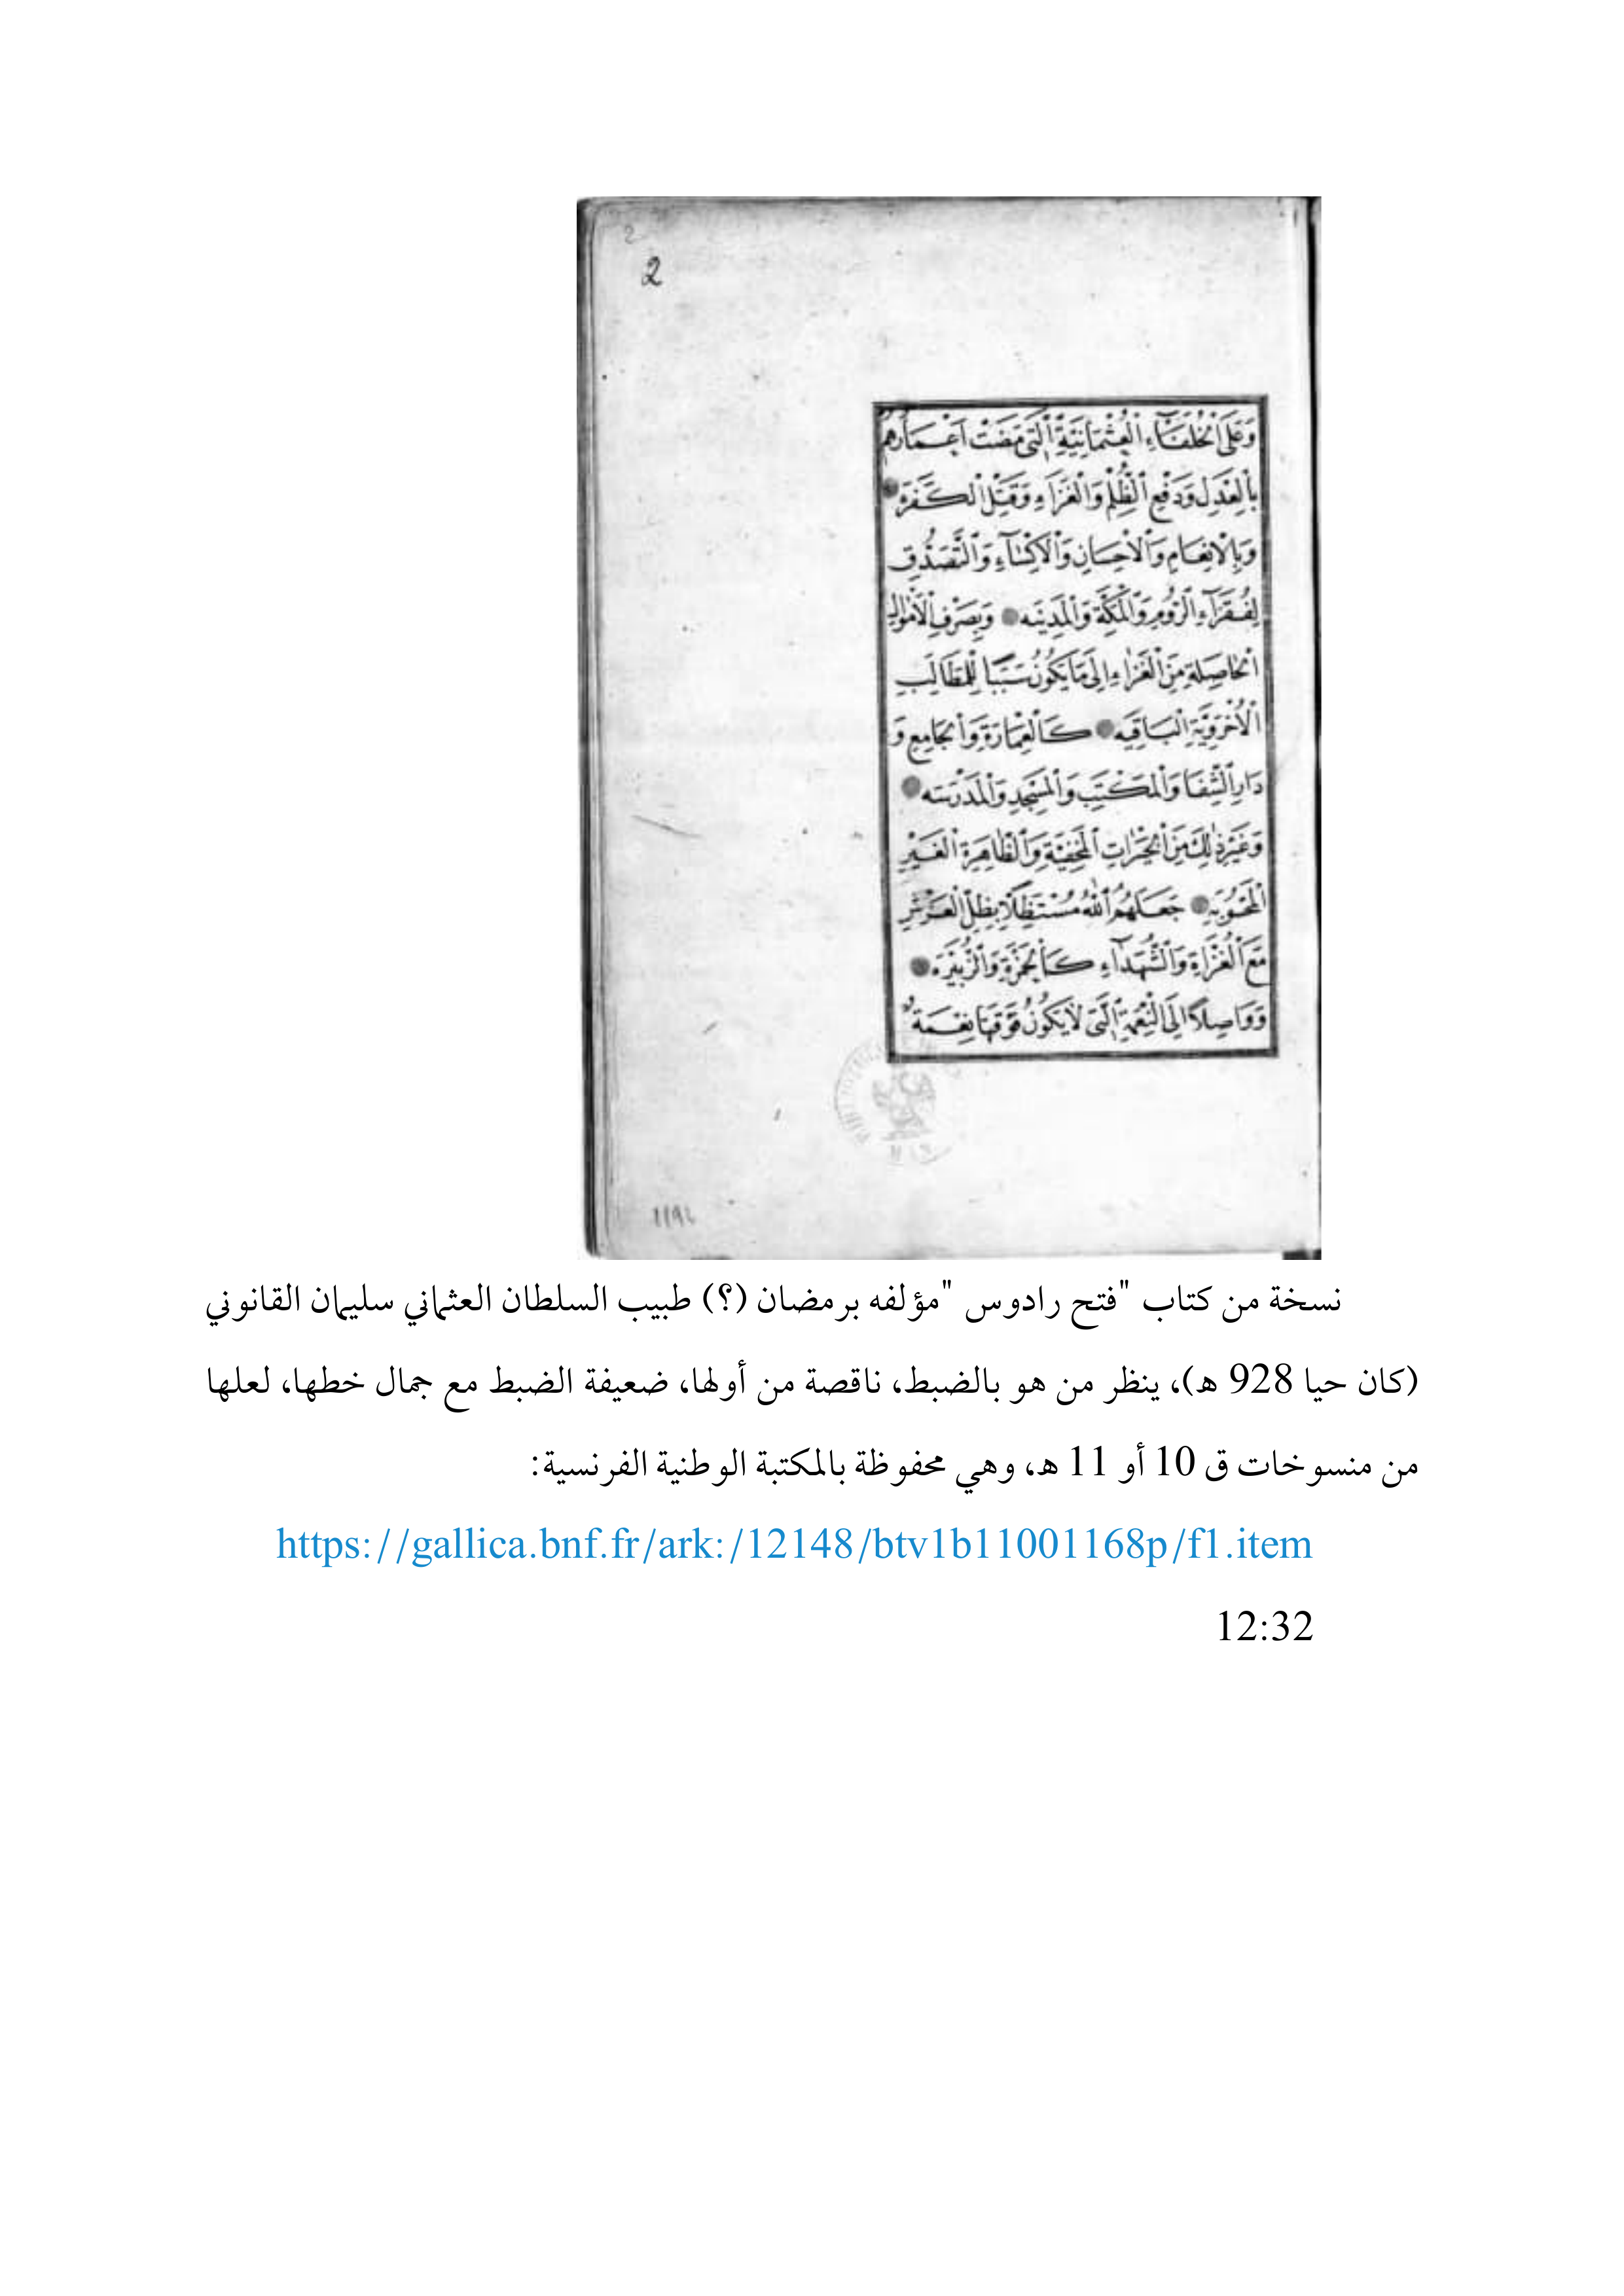 2
2
وَعَلَى الْخُلَفَآءِ الْعُثْمَانِيَّةِ الَّتِى مَضَتْ اَعْمَارُهُمْ
بِالْعَدْلِ وَدَفْعِ الظُّلْمِ وَالْغَزَاءِ وَقَتْلِ الْكَفَرَه
وَبِالْاِنْعَامِ وَالْاِحْسَانِ وَالْاِكْسَآءِ وَالتَّصَدُّقِ
لِفُقَرَآءِ الرُّومِ وَالْمَكَّةِ وَالْمَدِينَه وَبِصَرْفِ الْاَمْوَالِ
الْحَاصِلَةِ مِنَ الْغَزَاءِ اِلَى مَا يَكُونُ سَبَبًا لِلْمَطَالِبِ
الْاُخْرَوِيَّةِ الْبَاقِيَه كَالْعِمَارَةِ وَالْجَامِعِ وَ
دَارِ الشِّفَا وَالْمَكْتَبِ وَالْمَسْجِدِ وَالْمَدْرَسَه
وَغَيْرِ ذٰلِكَ مِنَ الْخَيْرَاتِ الْمَخْفِيَّةِ وَالظَّاهِرَةِ الْغَيْرِ
جَعَلَهُمُ اللّٰهُ مُسْتَظِلًّا بِظِلِّ الْعَرْشِ
مَعَ الْغُزَاةِ وَالشُّهَدَآءِ كَالْحَمْزَةِ وَالزُّبَيْرَه
وَوَاصِلًا اِلَى النِّعْمَةِ الَّتِى لَا يَكُونُ فَوْقَهَا نِعْمَةٌ
نسخة من كتاب "فتح رادوس "مؤلفه برمضان (؟) طبيب السلطان العثماني سليمان القانوني
(كان حيا 928 ه)، ينظر من هو بالضبط، ناقصة من أولها، ضعيفة الضبط مع جمال خطها، لعلها
من منسوخات ق 10 أو 11 ه، وهي محفوظة بالمكتبة الوطنية الفرنسية:
https://gallica.bnf.fr/ark:/12148/btv1b11001168p/f1.item
12:32